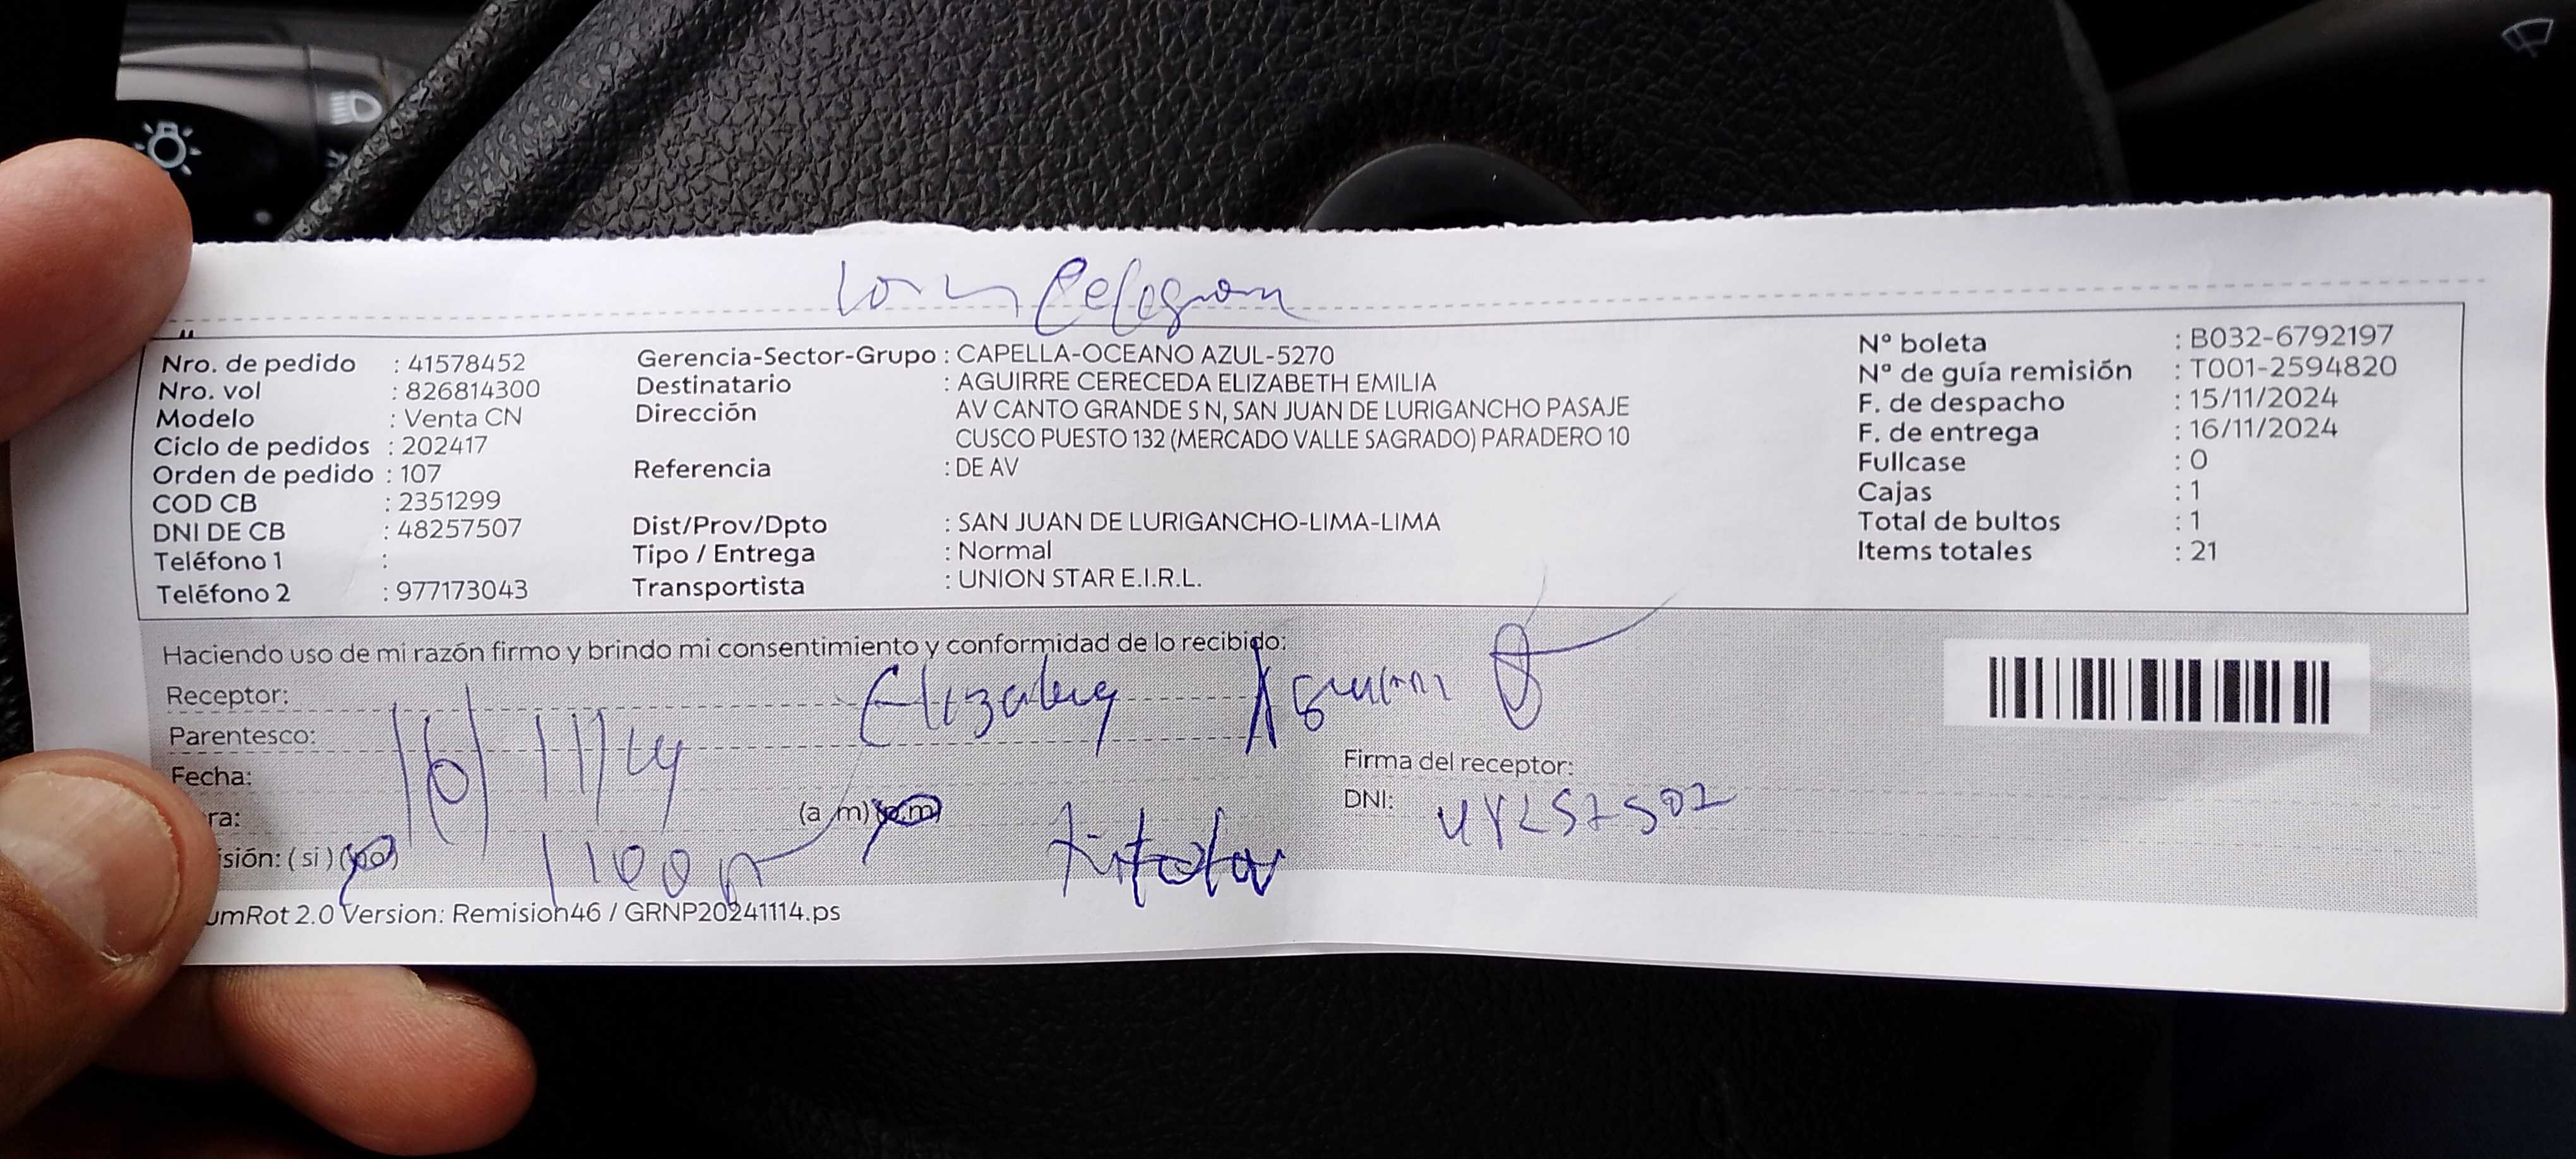 Nro. de pedido : 41578452
Nro. vol : 826814300
Modelo : Venta CN
Ciclo de pedidos : 202417
Orden de pedido : 107
COD CB : 2351299
DNI DE CB : 48257507
Teléfono 1 :
Teléfono 2 : 977173043
Gerencia-Sector-Grupo : CAPELLA-OCEANO AZUL-5270
Destinatario : AGUIRRE CERECEDA ELIZABETH EMILIA
Dirección AV CANTO GRANDE S N, SAN JUAN DE LURIGANCHO PASAJE
CUSCO PUESTO 132 (MERCADO VALLE SAGRADO) PARADERO 10
Referencia : DE AV
Dist/Prov/Dpto : SAN JUAN DE LURIGANCHO-LIMA-LIMA
Tipo / Entrega : Normal
Transportista : UNION STAR E.I.R.L.
N° boleta : B032-6792197
N° de guía remisión : T001-2594820
F. de despacho : 15/11/2024
F. de entrega : 16/11/2024
Fullcase : 0
Cajas : 1
Total de bultos : 1
Items totales : 21
Haciendo uso de mi razón firmo y brindo mi consentimiento y conformidad de lo recibido:
Receptor:
Parentesco:
Fecha: 16/11/24
ra: (a m) (p m)
sión: ( si ) (no)
Firma del receptor:
DNI: 48257507
umRot 2.0 Version: Remision46 / GRNP20241114.ps